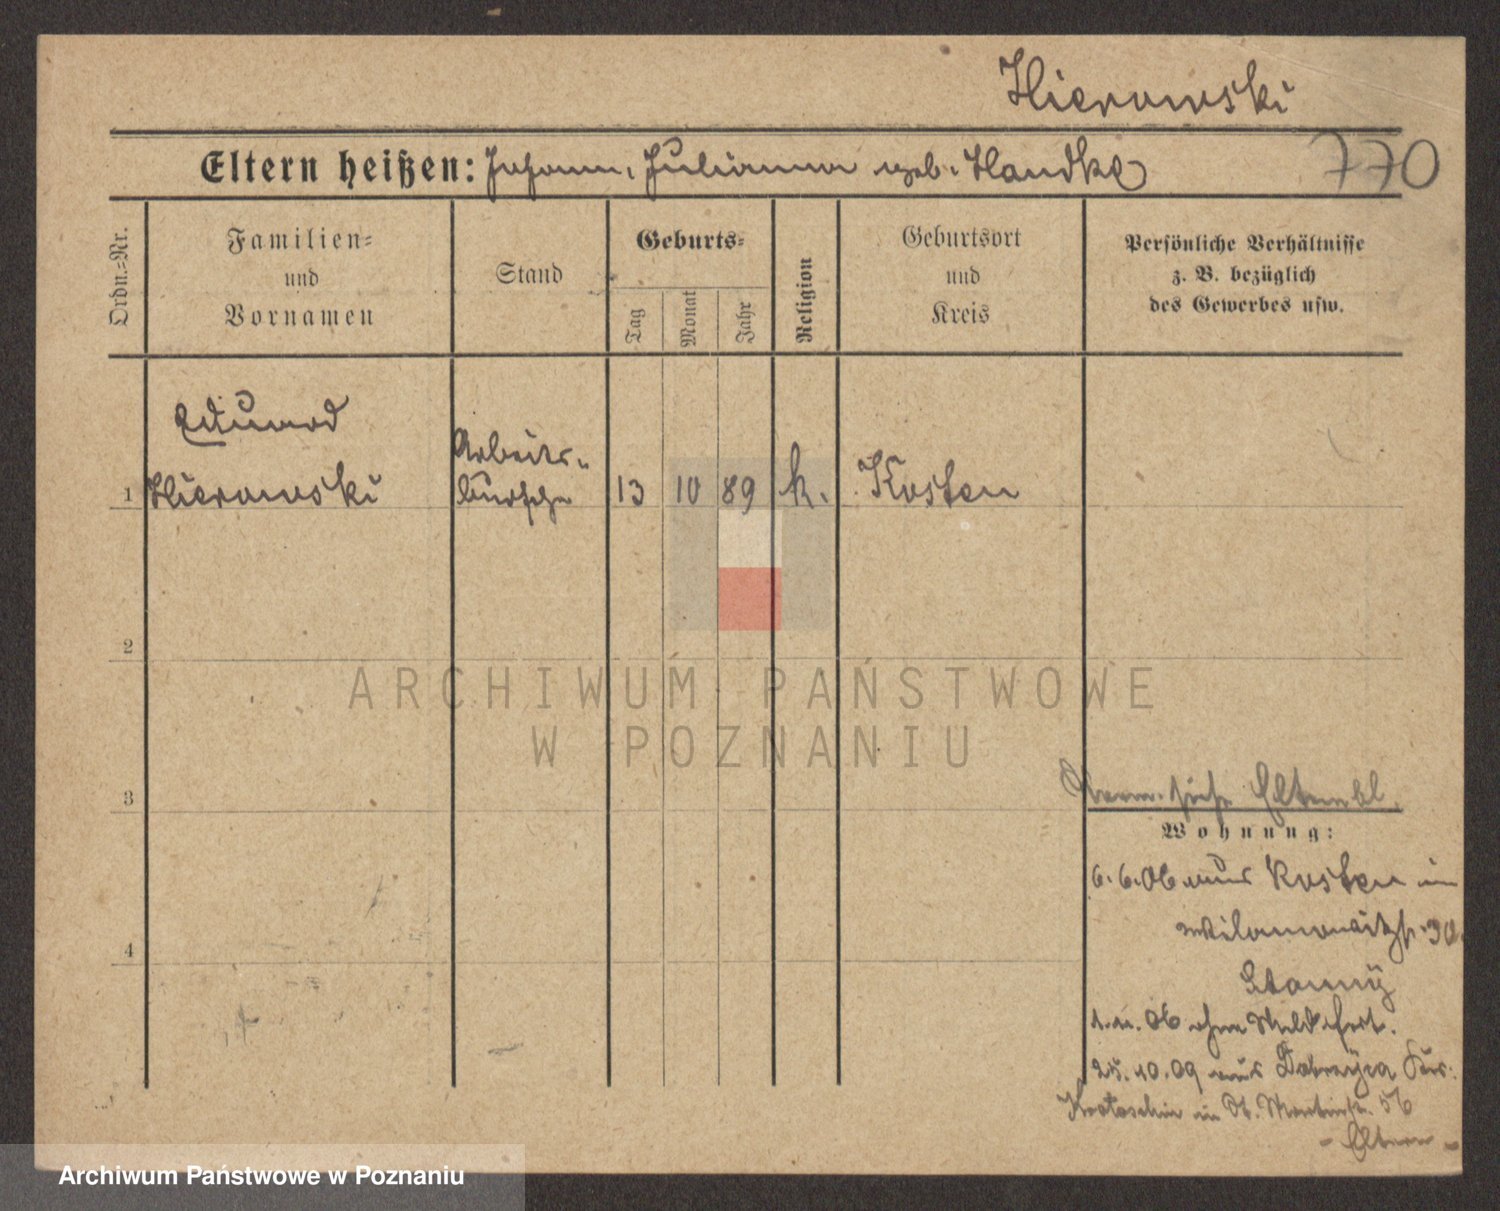 Hierowski
Eltern heißen: Johann, Julianna geb. Handke
770
Ordn.=Nr.
Familien=
und
Vornamen
Stand
Geburts=
Tag
Monat
Jahr
Religion
Geburtsort
und
Kreis
Persönliche Verhältnisse
z. B. bezüglich
des Gewerbes usw.
Eduard
Arbeits-
1 Hierowski bursche 13 10 89 k. Kosten
2
ARCHIWUM PAŃSTWOWE
W POZNANIU
3
siehe Elternbl.
Wohnung:
6.6.06 aus Kosten in
4
1.11.06 ohne
25.10.09 aus
Krotoschin in St. Martinstr. 56
- Eltern -
Archiwum Państwowe w Poznaniu